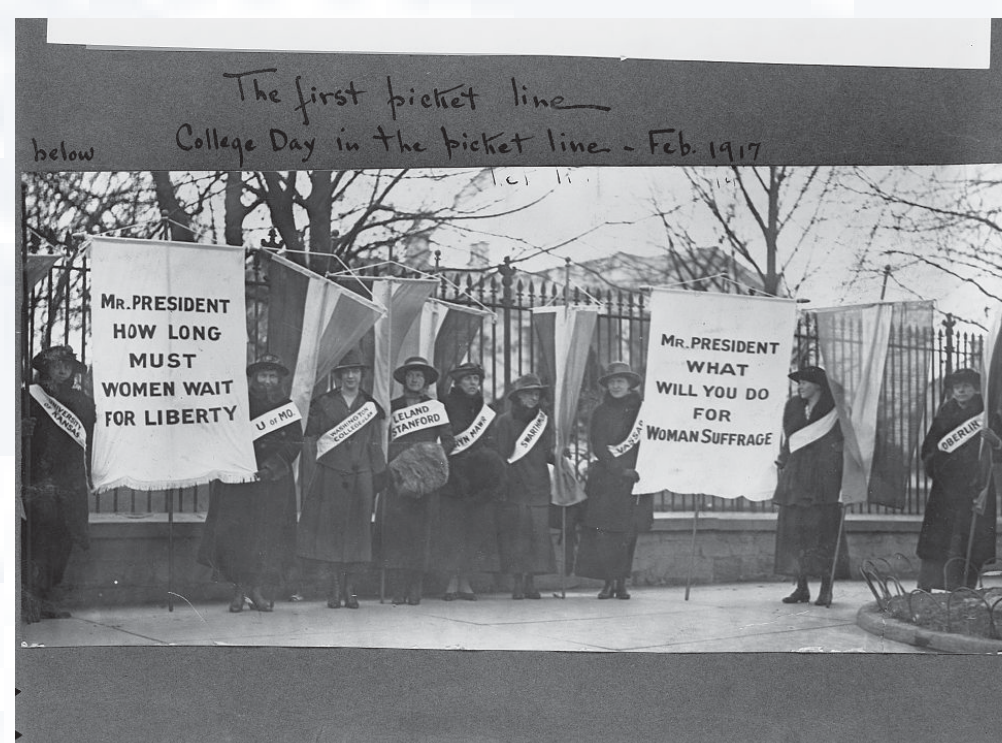 The first picket line
College Day in the picket line - Feb. 1917
below
MR. PRESIDENT
HOW LONG
MUST
WOMEN WAIT
FOR LIBERTY
MR. PRESIDENT
WHAT
WILL YOU DO
FOR
WOMAN SUFFRAGE
KANSAS
U OF MO.
WASHINGTON
COLLEGE
LELAND
STANFORD
YN MAWR
SWARTHM
VASSA
OBERLIN